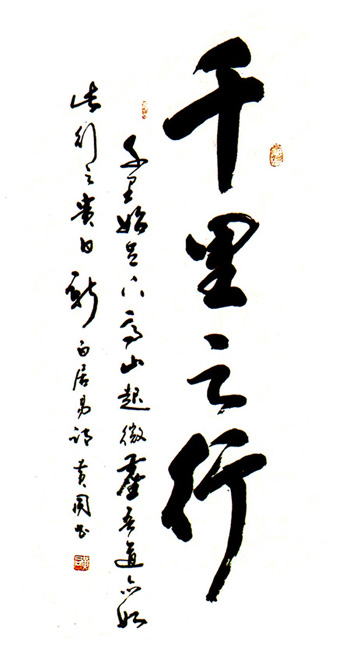 千里之行
千里始足下高山起微塵吾道亦如
此行之貴日新 白居易詩 黄